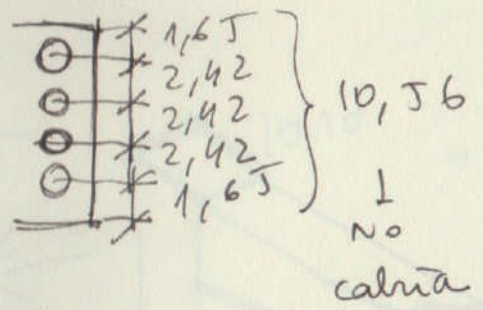 1,65
2,42
2,42
2,42
1,65
10,56
No
cabría